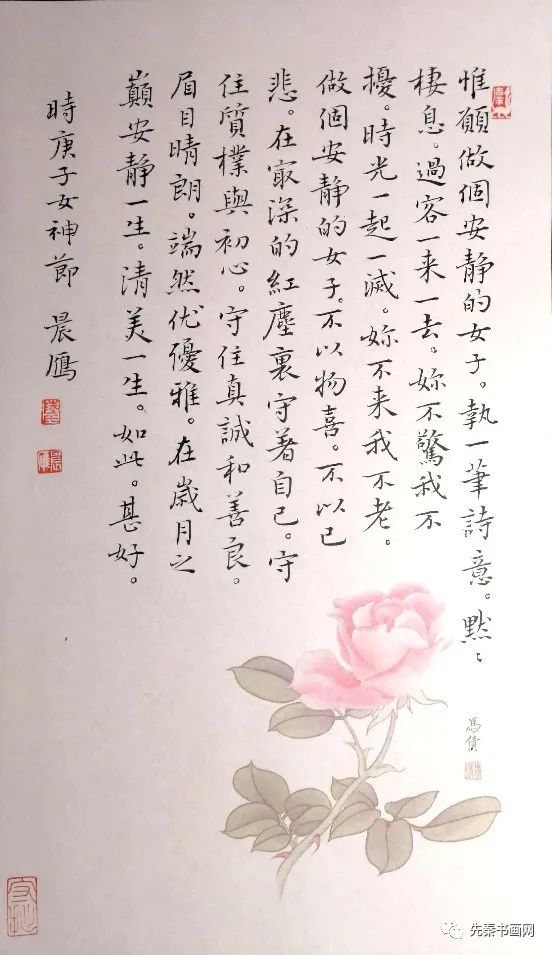 惟願做個安靜的女子。執一筆詩意。默〻
棲息。過客一来一去。妳不驚我不
擾。時光一起一滅。妳不来我不老。
做個安靜的女子。不以物喜。不以已
悲。在寂深的紅塵裏守着自己。守
住質樸與初心。守住真誠和善良。
眉目晴朗。端然优優雅。在歲月之
巔安靜一生。清美一生。如此。甚好。
時庚子女神節 晨鴈
先秦书画网